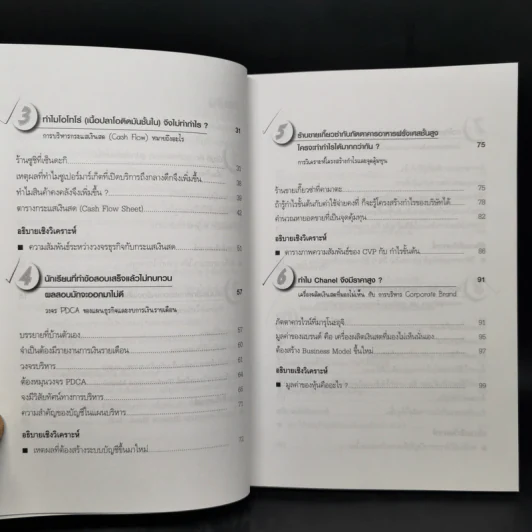 3 ทำไมโอโทโร่ (เนื้อปลาโอติดมันชั้นใน) จึงไม่ทำกำไร ? 31
การบริหารกระแสเงินสด (Cash Flow) หมายถึงอะไร
ร้านซูชิที่เซ็นตะกิ
เหตุผลที่ทำไมซูเปอร์มาร์เก็ตที่เปิดบริการถึงกลางดึกจึงเพิ่มขึ้น
ทำไมสินค้าคงคลังจึงเพิ่มขึ้น ?
ตารางกระแสเงินสด (Cash Flow Sheet)
อธิบายเชิงวิเคราะห์
■ ความสัมพันธ์ระหว่างวงจรธุรกิจกับกระแสเงินสด
4 นักเรียนที่ทำข้อสอบเสร็จแล้วไม่ทบทวน
ผลสอบมักจะออกมาไม่ดี 57
วงจร PDCA ของแผนธุรกิจและงบการเงินรายเดือน
บรรยายที่บ้านตัวเอง 57
จำเป็นต้องมีรายงานการเงินรายเดือน
วงจรบริหาร
ต้องหมุนวงจร PDCA
จงมีวิสัยทัศน์ทางการบริหาร
ความสำคัญของบัญชีในแผนบริหาร 71
อธิบายเชิงวิเคราะห์
■ เหตุผลที่ต้องสร้างระบบบัญชีขึ้นมาใหม่
5 ร้านขายเกี๊ยวซ่ากับภัตตาคารอาหารฝรั่งเศสชั้นสูง
ใครจะทำกำไรได้มากกว่ากัน ? 75
การวิเคราะห์โครงสร้างกำไรและจุดคุ้มทุน
ร้านขายเกี๊ยวซ่าที่คามาตะ 75
ถ้ารู้กำไรขั้นต้นกับค่าใช้จ่ายคงที่ ก็จะรู้โครงสร้างกำไรของบริษัทได้ 78
คำนวณหายอดขายที่เป็นจุดคุ้มทุน 82
อธิบายเชิงวิเคราะห์
■ ตารางภาพความสัมพันธ์ของ CVP กับ กำไรขั้นต้น 86
6 ทำไม Chanel จึงมีราคาสูง ? 91
เครื่องผลิตเงินสดที่มองไม่เห็น กับ การบริหาร Corporate Brand
ภัตตาคารไวน์ที่มารุโนะอุจิ 91
มูลค่าของแบรนด์ คือ เครื่องผลิตเงินสดที่มองไม่เห็นนั่นเอง 95
ต้องสร้าง Business Model ขึ้นใหม่ 97
อธิบายเชิงวิเคราะห์
■ มูลค่าของหุ้นคืออะไร ? 99